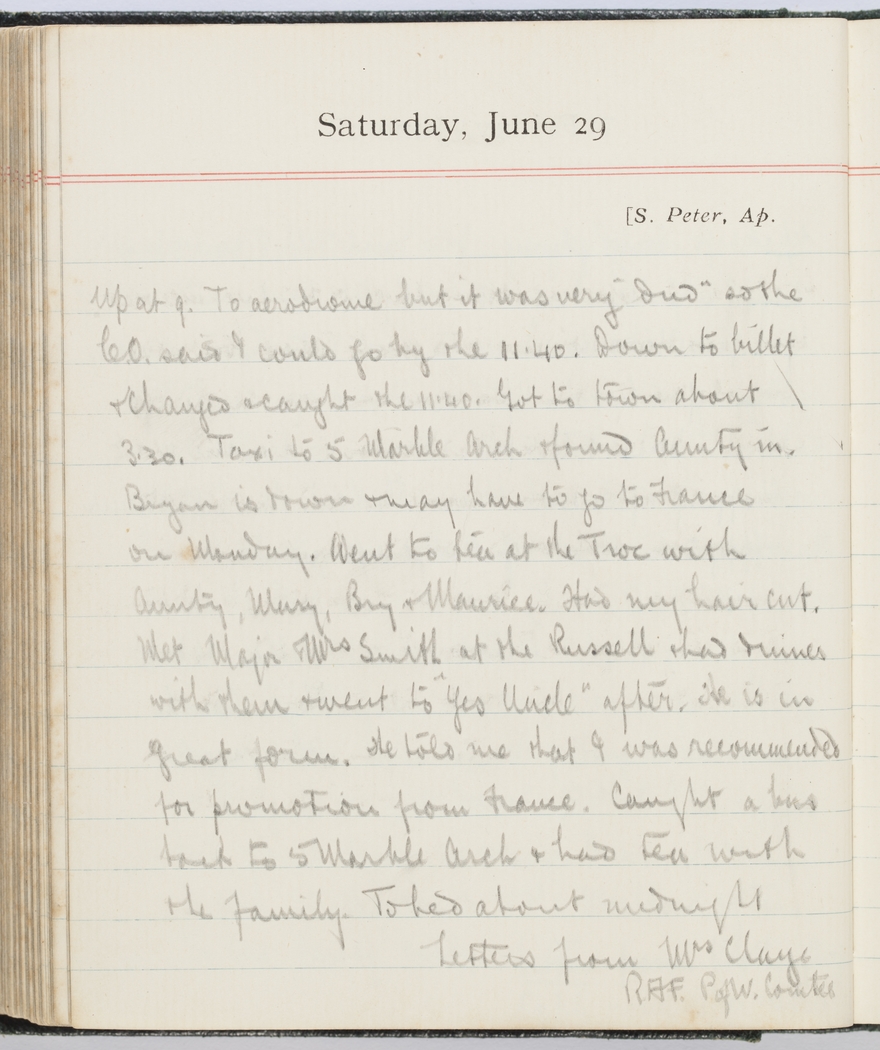 Saturday, June 29
[S. Peter, Ap.
Up at 9. To aerodrome but it was very "dud" so the
C.O. said I could go by the 11.40. Down to billet
& changed & caught the 11.40. Got to town about
3.30. Taxi to 5 Marble Arch & found Aunty in.
Bryan is down & may have to go to France
on Monday. Went to tea at the Troc with
Aunty, Mary, Bry & Maurice. Had my hair cut.
Met Major & Mrs Smith at the Russell & had dinner
with them & went to "Yes Uncle" after. He is in
great form. He told me that I was recommended
for promotion from France. Caught a bus
back to 5 Marble Arch & had tea with
the family. To bed about midnight
Letters from Mrs Claye
RAF. P of W. Comtee